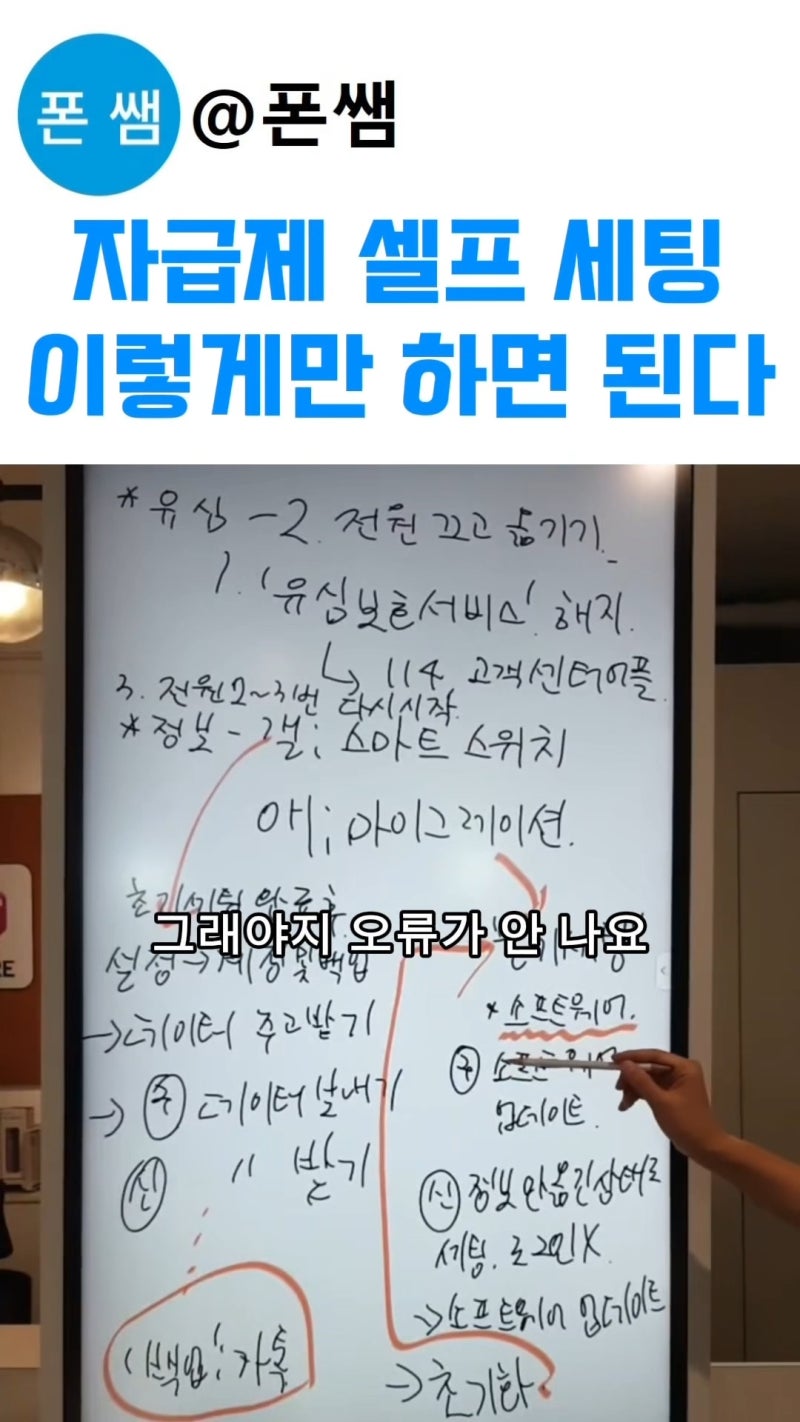 폰 쌤 @폰쌤
자급제 셀프 세팅
이렇게만 하면 된다
* 유심 - 2. 전원 끄고 옮기기.
1. '유심보호서비스' 해지.
↳ 114 고객센터어플.
3. 전원 2~3번 다시시작.
* 정보 - 갤; 스마트 스위치
애; 마이그레이션.
초기세팅 완료후
그래야지 오류가 안 나요
설정→계정및백업
→데이터 주고받기
→ 구 데이터 보내기
신 〃 받기
'백업' 카톡
* 소프트웨어.
구 소프트웨어
업데이트.
신 정보 안옮긴상태로
세팅. 로그인X.
→소프트웨어 업데이트
→초기화